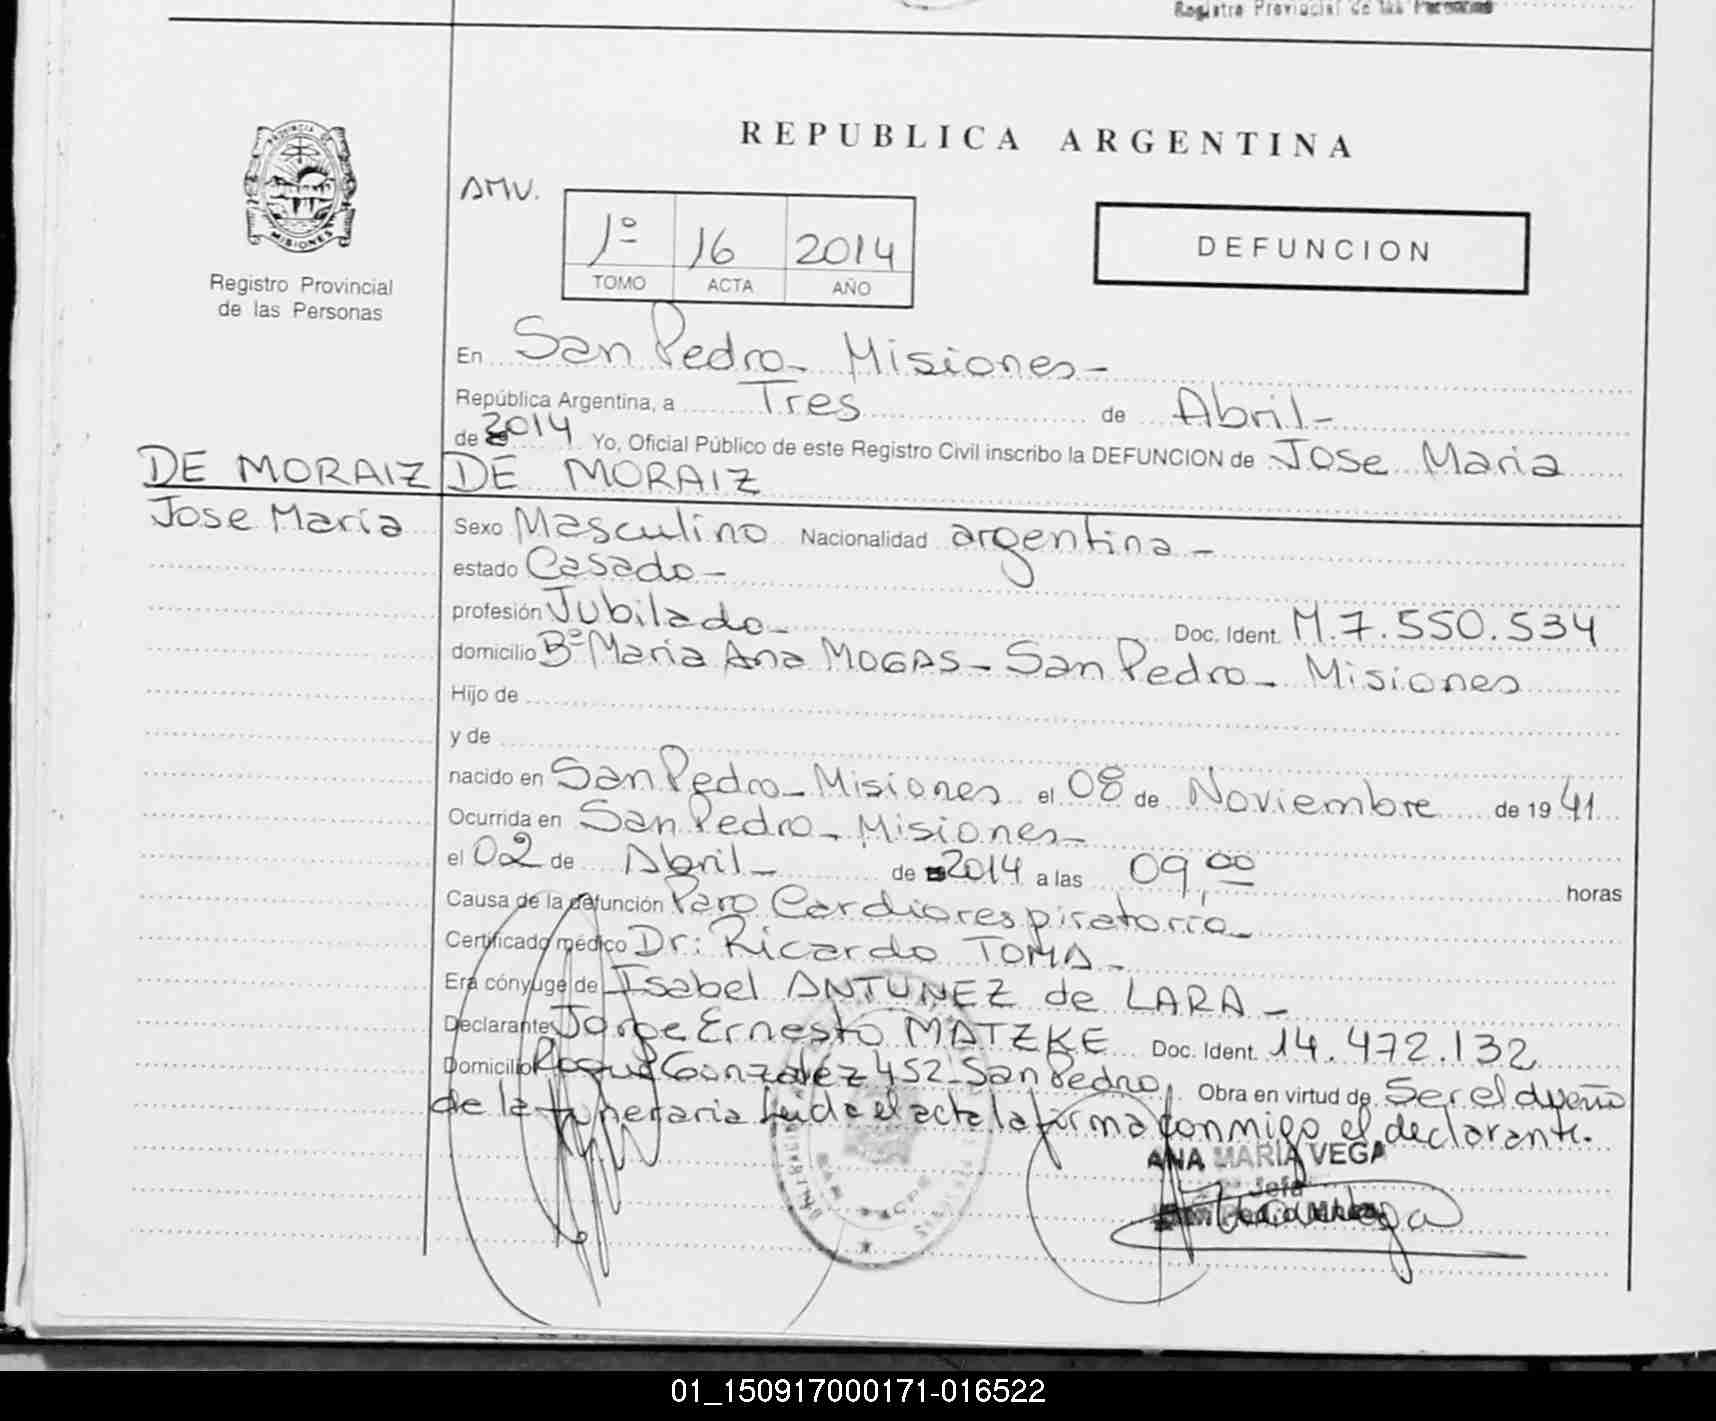 Registro Provincial de las Personas
REPUBLICA ARGENTINA
PROVINCIA DE
MISIONES
AMV.
1º 16 2014
TOMO ACTA AÑO
DEFUNCION
Registro Provincial
de las Personas
En San Pedro - Misiones -
República Argentina, a Tres de Abril -
de 2014 Yo, Oficial Público de este Registro Civil inscribo la DEFUNCION de Jose Maria
DE MORAIZ DE MORAIZ
Jose Maria
Sexo Masculino Nacionalidad argentina -
estado Casado -
profesión Jubilado - Doc. Ident. M.7.550.534
domicilio Bº Maria Ana MOGAS - San Pedro - Misiones
Hijo de
y de
nacido en San Pedro - Misiones el 08 de Noviembre de 1941
Ocurrida en San Pedro - Misiones -
el 02 de Abril - de 2014 a las 09,00 horas
Causa de la defunción Paro Cardiorespiratorio -
Certificado médico Dr: Ricardo TOMA -
Era cónyuge de Isabel ANTUNEZ de LARA -
Declarante Jorge Ernesto MATZKE Doc. Ident. 14.472.132
Domicilio Roque Gonzalez 452 - San Pedro. Obra en virtud de Ser el dueño
de la funeraria Leida el acta la firma conmigo el declarante.
ANA MARIA VEGA
Jefa
01_150917000171-016522